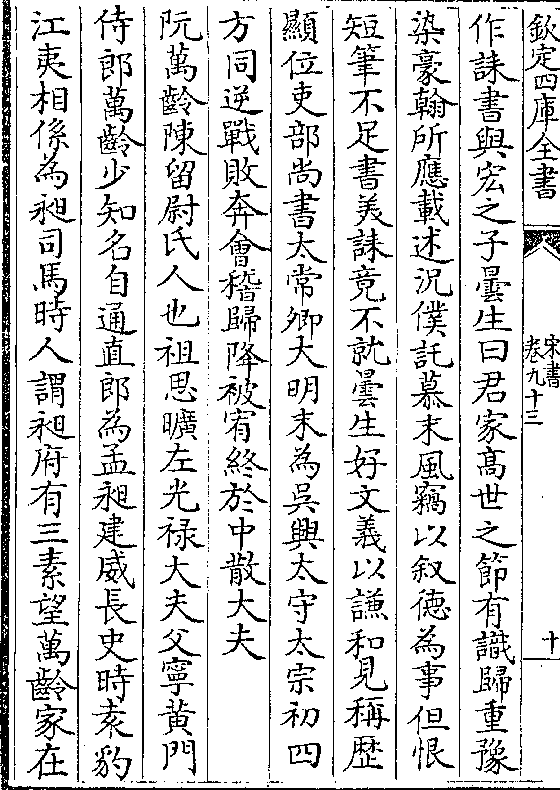 欽定四庫全書
宋書
卷九十三
十
作誄書與宏之子曇生曰君家髙世之節有識歸重豫
染豪翰所應載述況僕託慕末風竊以叙徳為事但恨
短筆不足書美誄竟不就曇生好文義以謙和見稱歴
顯位吏部尚書太常卿大明末為吳興太守太宗初四
方同逆戰敗奔會稽歸降被宥終於中散大夫
阮萬齡陳留尉氏人也祖思曠左光禄大夫父寧黄門
侍郎萬齡少知名自通直郎為孟昶建威長史時袁豹
江夷相係為昶司馬時人謂昶府有三素望萬齡家在